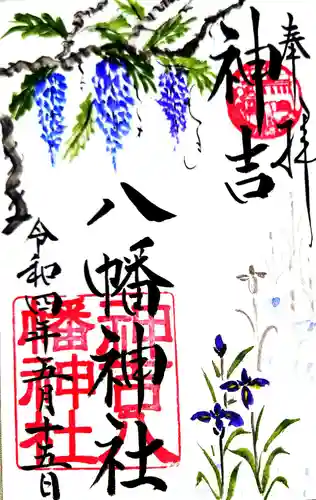 奉拝
神吉
八幡神社
令和四年五月十五日
神吉八
幡神社